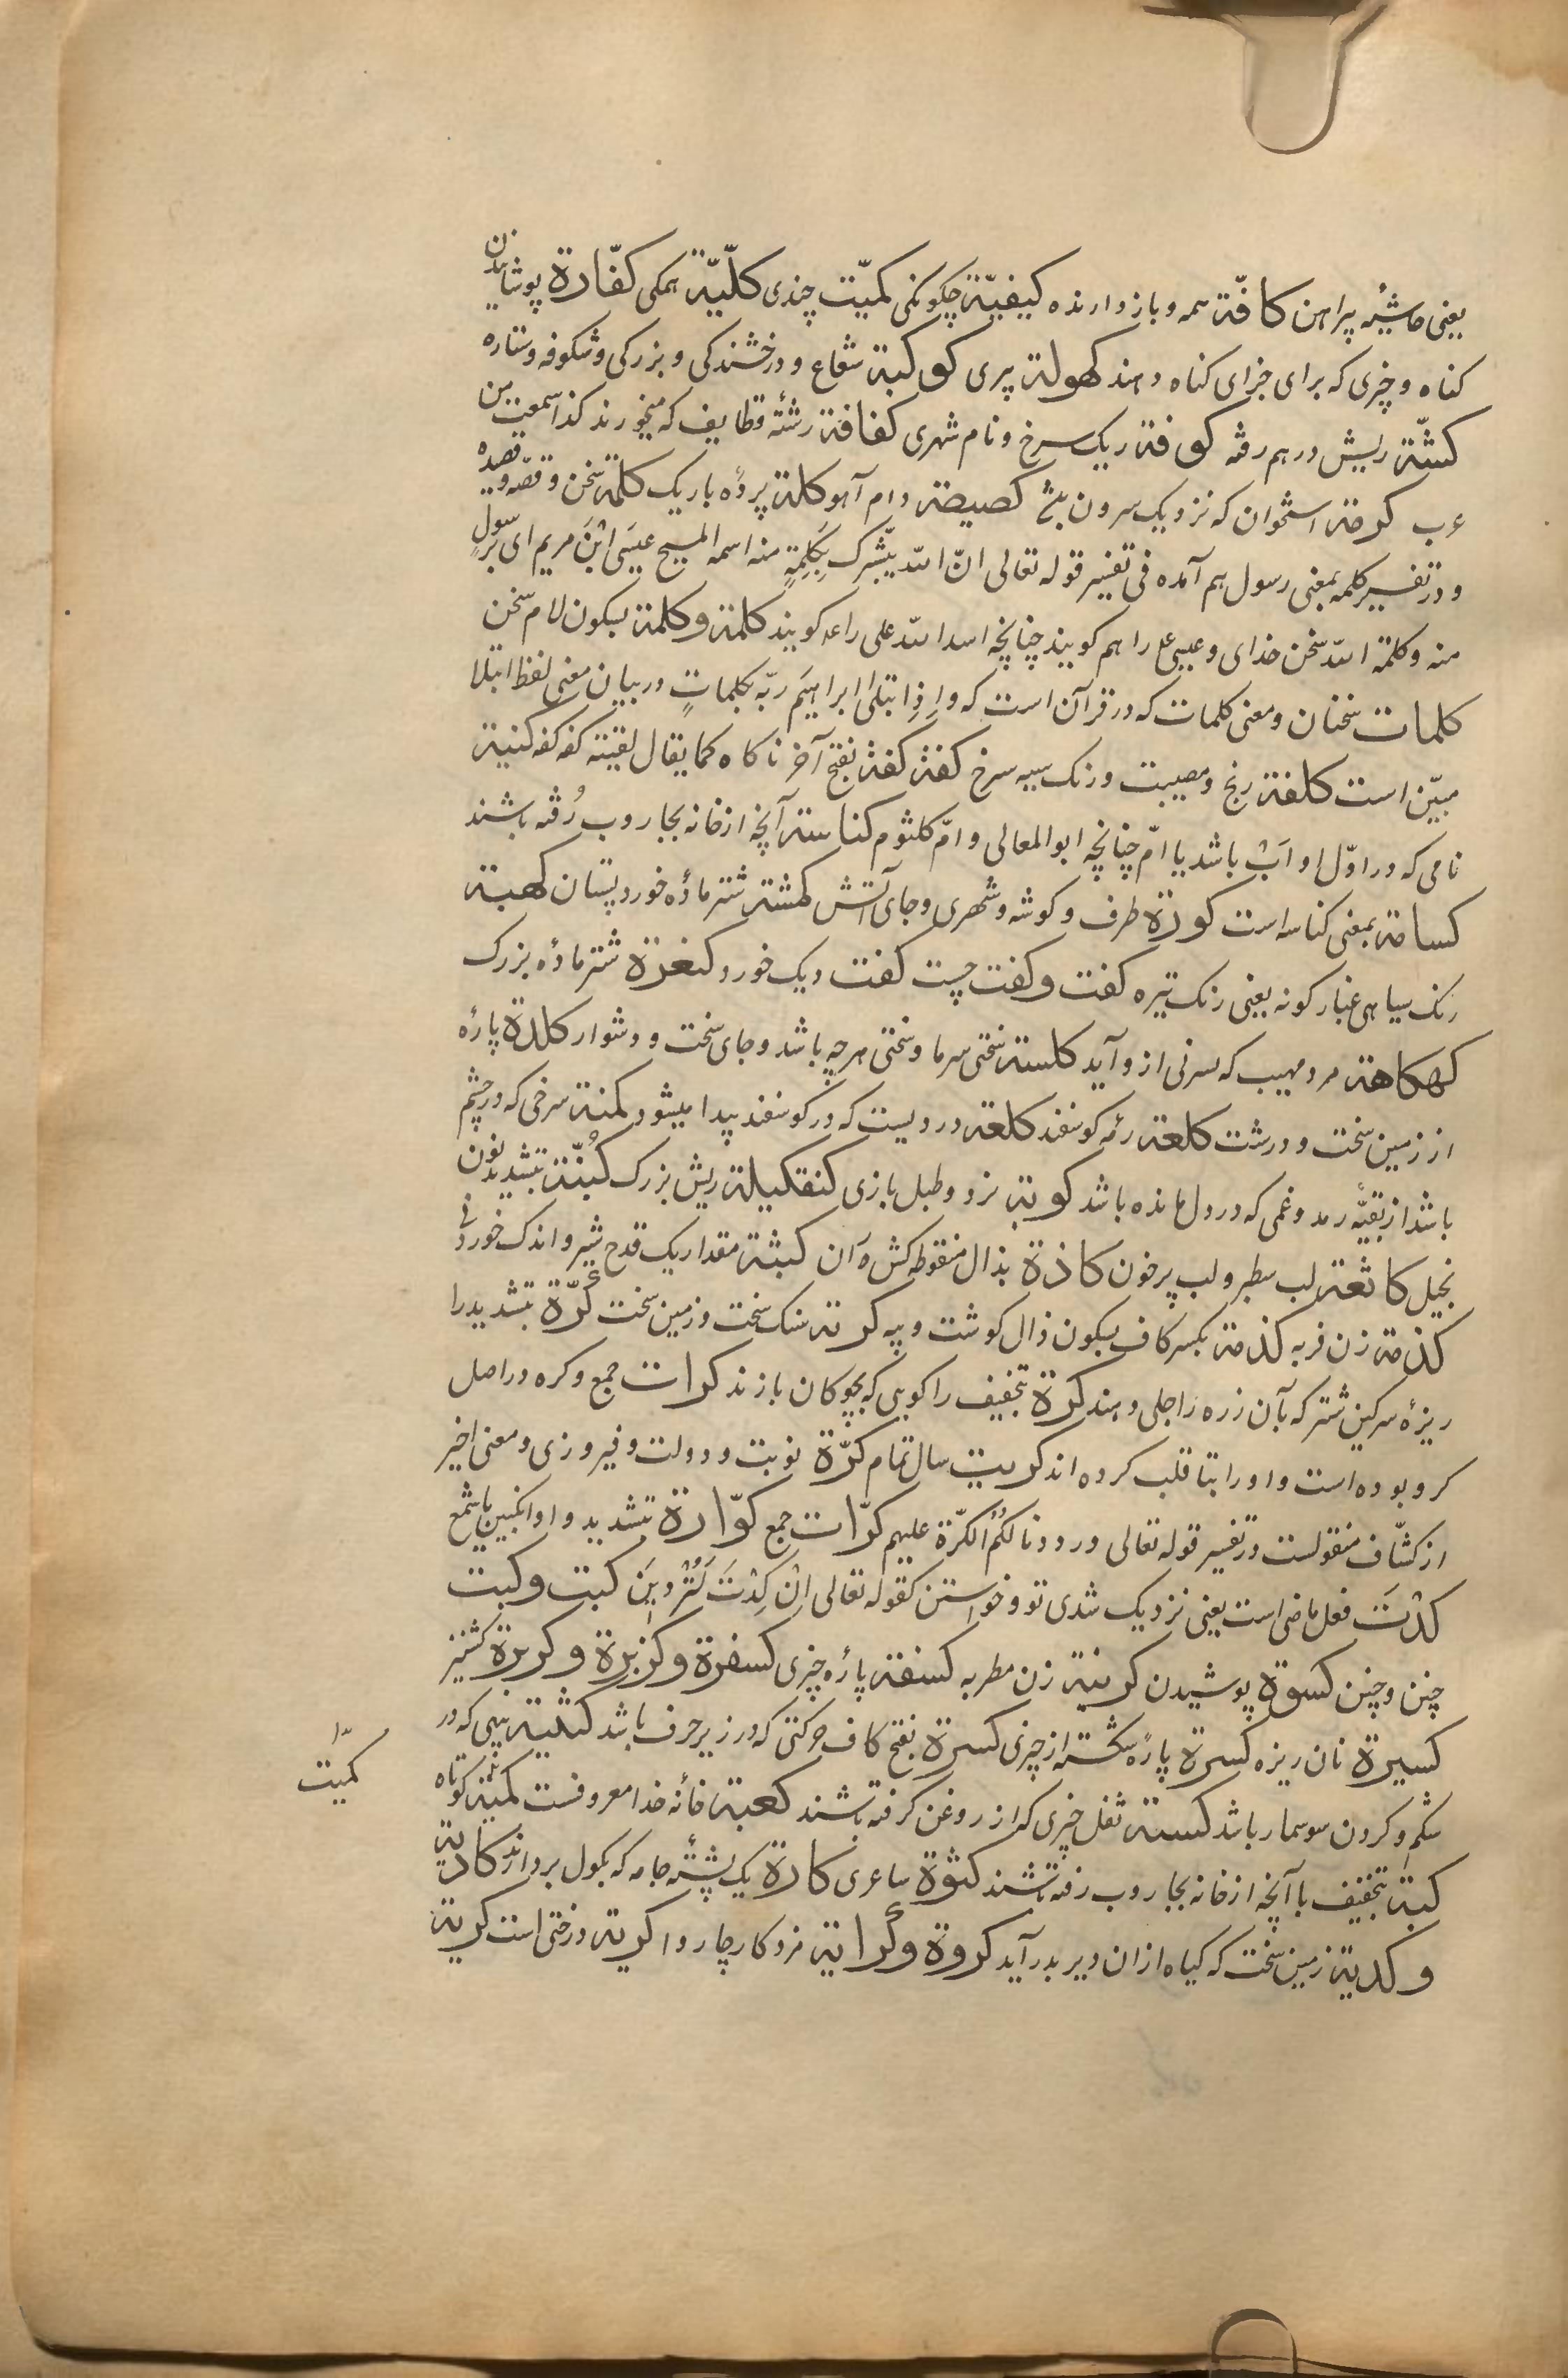 یعنی حاشیهٔ پیراهن کافّة همه و باز دارنده کیفیّة چکونکی کمیّت چندی کلّیّة همکی کفّارة پوشانیدن
کناه و چیزی که برای جزای کناه دهند کهولة پیری کوکبة شعاع و درخشندکی و بزرکی و شکوفه و ستاره
کثّة ریش درهم رفته کوفة ریک سرخ و نام شهری کنافة رشتهٔ قطایف که میخورند کذا سمعت من
عرب کرمة استخوان که نزدیک سرون کصیصة دام آهو کلة پردهٔ باریک کلمة سخن و قصّه و قصیده
و در تفسیر کلمه بمعنی رسول هم آمده فی تفسیر قوله تعالی انّ الله یبشّرک بِکَلِمَةٍ منه اسمه المسیح عیسَی ابْنَ مریم ای برسولٍ
منه و کلمة الله سخن خدای و عیسی ع را هم کویند چنانچه اسد الله علی را عم کویند کلمة و کلمة بسکون لام سخن
کلمات سخنان و معنی کلمات که در قرآن است که و اِذِ ابتلیٰ ابراهیَم ربّه بکلماتٍ در بیان معنی لفظ ابتلا
مبیّن است کلفة رنج و مصیبت و رنک سیه سرخ کفة کفة بفتح آخر ناکاه کما یقال لقیته کفه کفه کنیة
نامی که در اوّل او اَبْ باشد یا امّ چنانچه ابوالمعالی و امّ کلثوم کناسة آنچه از خانه بجاروب رُفته باشند
کساحة بمعنی کناسه است کورة طرف و کوشه و شهری و جای آتش کمشة شتر مادهٔ خورد پستان کهبة
رنک سیاهی غبار کونه یعنی رنک تیره کفت و کفت چست کفت دیک خورد کنعرة شتر مادهٔ بزرک
کهکاهة مرد مهیب که سرنی از و آید کلسة سختی سرما و سختی هر چه باشد و جای سخت و دشوار کلدة پارهٔ
از زمین سخت و درشت کلعة رمهٔ کوسفند کلعة دردیست که در کوسفند پیدا میشود کمنة سرخی که در چشم
باشد از بقیّهٔ رمد و غمی که در دل مانده باشد کوبة نرد و طبل بازی کنفکیلة ریش بزرک کُبُنّة بتشدید نون
بخیل کاثعة لب سطبر و لب پر خون کاذة بذال منقوطه کشهٔ ران کبثة مقدار یک قدح شیر و اندک خوردنی
کدمة زن فربه کذمة بکسر کاف بسکون ذال کوشت و پیه کرتة سنک سخت و زمین سخت کُرّة بتشدید را
ریزهٔ سرکین شتر که بآن زره را جلی دهند کرة بتخفیف را کوی که بچوکان بازند کرات جمع و کره در اصل
کرو بوده است و او را بتا قلب کرده اند کریت سال تمام کرّة نوبت و دولت و فیروزی و معنی اخیر
از کشّاف منقولست در تفسیر قوله تعالی و رددنا لکُمُ الکرّة علیهم کرّات جمع کوّارة بتشدید واو انکبین با شمع
کدْتَ فعل ماضی است یعنی نزدیک شدی تو و خواستن کقوله تعالی اِنْ کِدْتَ لَتُرْدِینَ کیت و کیت
چنین و چنین کسوة پوشیدن کرینة زن مطربه کسفة پارهٔ چیزی کسفرة و کزبرة و کربرة کشنیز
کسیرة نان ریزه کسرة پارهٔ شکسته از چیزی کسرة بفتح کاف حرکتی که در زیر حرف باشد کشیة پیهی که در
شکم و کردن سوسمار باشد کسبة ثفل چیزی که از روغن کرفته باشند کعبة خانهٔ خدا معروفست کمیة کوتاه
کبة بتخفیف با آنچه از خانه بجاروب رفته باشند کثوة شاعری کارة یک پشتهٔ جامه که بکول بردارند کادیة
و کدیة زمین سخت که کیاه ازان دیر بدر آید کروة و کُراية مزد کار چاروا کریة درختی است کریة
کمیّت